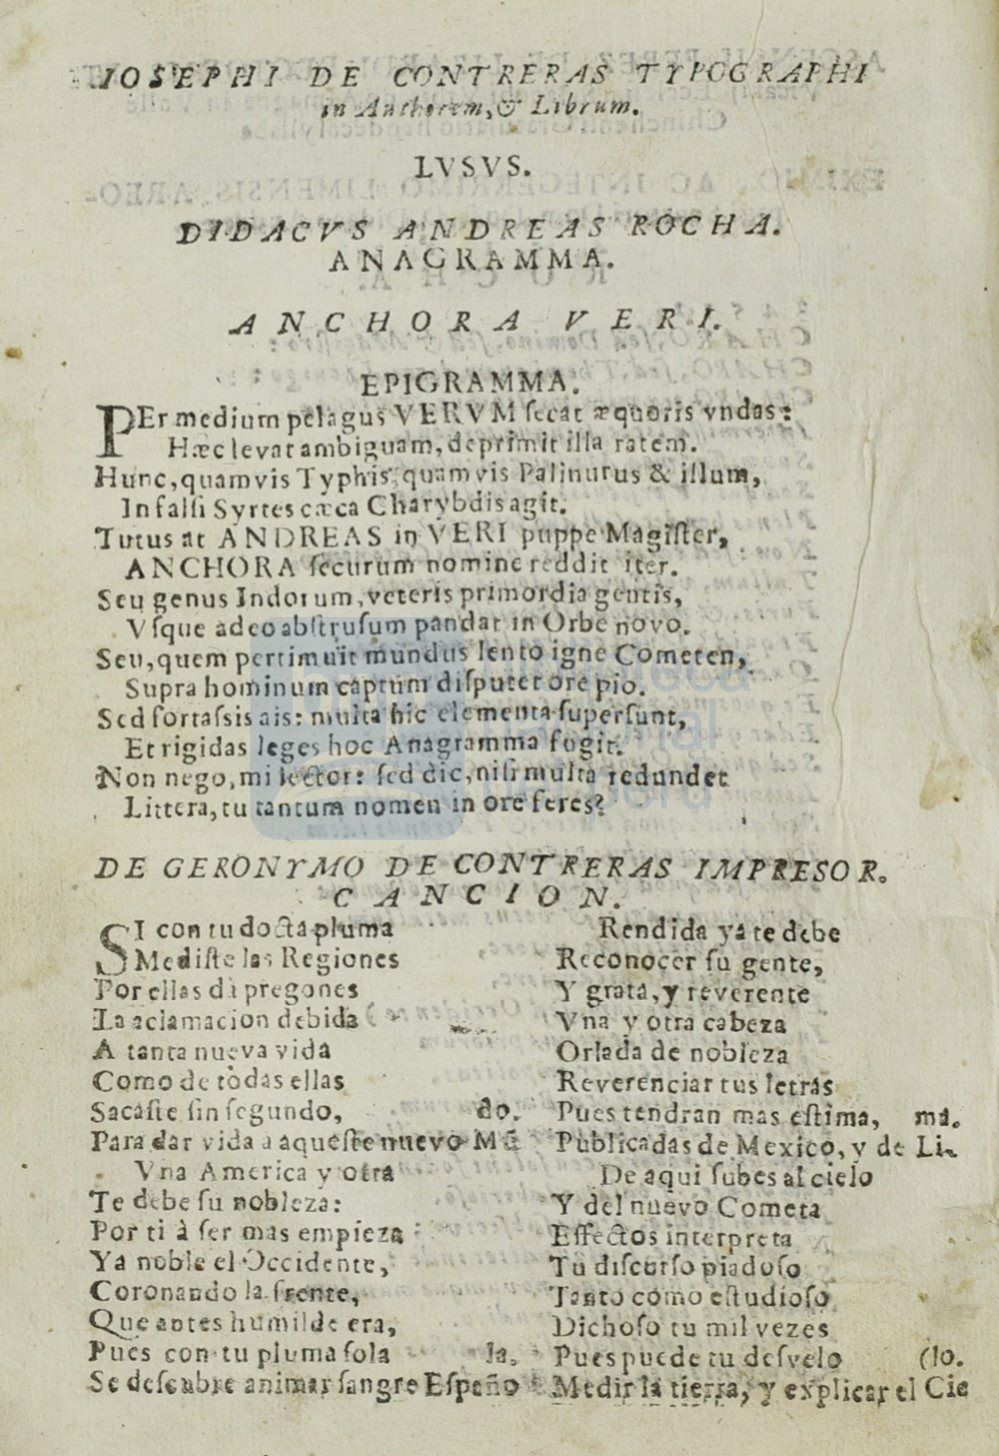 IOSEPHI DE CONTRERAS TYPOGRAPHI
in Authorem, & Librum.
LVSVS.
DIDACVS ANDREAS ROCHA.
ANAGRAMMA.
ANCHORA VERI.
EPIGRAMMA.
PEr medium pelagus VERVM secat æquoris vndas:
Hæc levat ambiguam, deprimit illa ratem.
Hunc, quamvis Typhis, quamvis Palinurus & illum,
In falsi Syrtes cæca Charybdis agit.
Tutus at ANDREAS in VERI puppe Magister,
ANCHORA securum nomine reddit iter.
Seu genus Indorum, veteris primordia gentis,
Vsque adeo abstrusum pandat in Orbe novo.
Seu, quem pertimuit mundus lento igne Cometen,
Supra hominum captum disputet ore pio.
Sed fortassis ais: multa hic elementa supersunt,
Et rigidas leges hoc Anagramma fugit.
Non nego, mi lector: sed dic, nisi multa redundet
Littera, tu tantum nomen in ore feres?
DE GERONYMO DE CONTRERAS IMPRESOR.
CANCION.
SI con tu docta pluma
Mediste las Regiones
Por ellas dà pregones
La aclamacion debida
A tanta nueva vida
Como de todas ellas
Sacaste sin segundo, do.
Para dar vida a aqueste nuevo Mũ
Vna America y otra
Te debe su nobleza:
Por ti à ser mas empieza
Ya noble el Occidente,
Coronando la frente,
Que antes humilde era,
Pues con tu pluma sola la.
Se descubre animar sangre Españo
Rendida yá te debe
Reconocer su gente,
Y grata, y reverente
Vna y otra cabeza
Orlada de nobleza
Reverenciar tus letras
Pues tendran mas estima, ma.
Publicadas de Mexico, y de Li-
De aqui subes al cielo
Y del nuevo Cometa
Effectos interpreta
Tu discurso piadoso
Tanto como estudioso
Dichoso tu mil vezes
Pues puede tu desvelo (lo.
Medir la tierra, y explicar el Cie